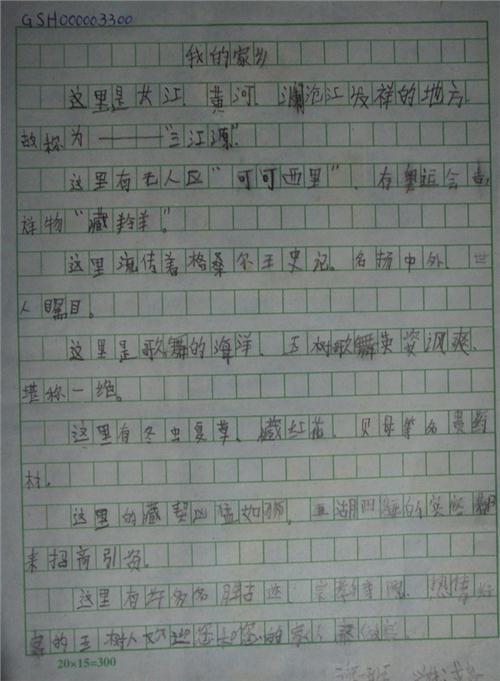 GSH000003300
我的家乡
这里是长江、黄河、澜沧江发祥的地方,
故称为———"三江源"。
这里有无人区"可可西里"、有奥运会吉
祥物"藏羚羊"。
这里流传着格桑尔王史记。名扬中外、世
人瞩目。
这里是歌舞的海洋、玉树歌舞英姿飒爽、
堪称一绝。
这里有冬虫夏草、藏红花、贝母等名贵药
材。
这里的藏獒凶猛如狮。五湖四海的宾
来招商引资。
这里有许多名胜古迹 热情好
客的玉树人欢迎您和您的家人
20×15=300